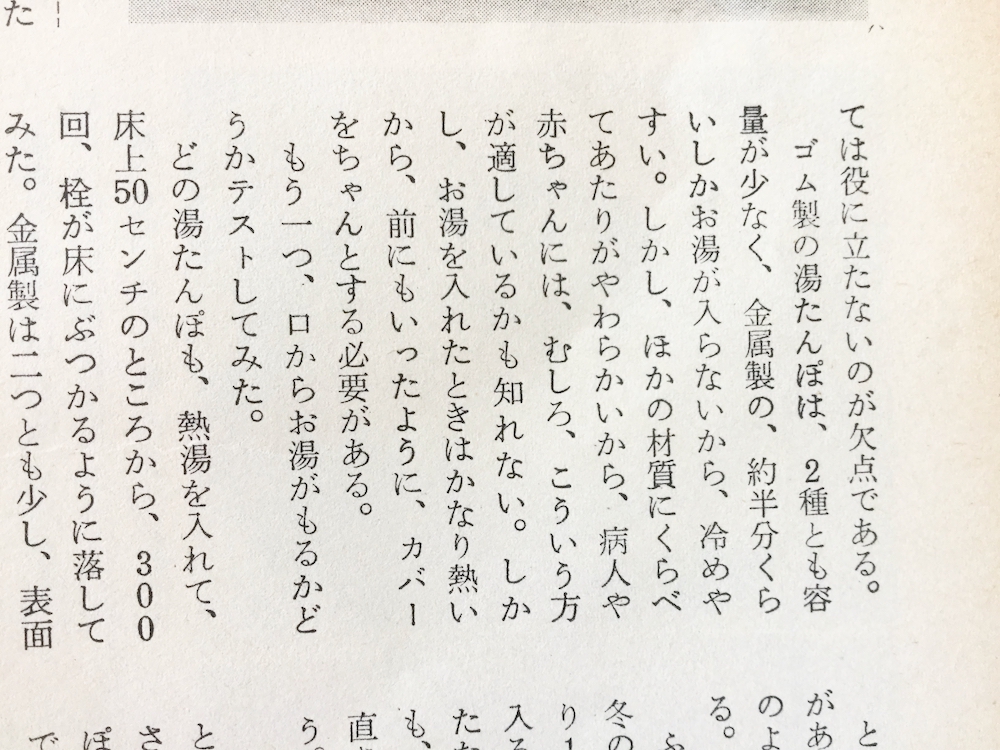 ては役に立たないのが欠点である。
ゴム製の湯たんぽは、2種とも容
量が少なく、金属製の、約半分くら
いしかお湯が入らないから、冷めや
すい。しかし、ほかの材質にくらべ
てあたりがやわらかいから、病人や
赤ちゃんには、むしろ、こういう方
が適しているかも知れない。しか
し、お湯を入れたときはかなり熱い
から、前にもいったように、カバー
をちゃんとする必要がある。
もう一つ、口からお湯がもるかど
うかテストしてみた。
どの湯たんぽも、熱湯を入れて、
床上50センチのところから、300
回、栓が床にぶつかるように落して
みた。金属製は二つとも少し、表面
た
と
があ
のよ
る。
ふ
冬の
り1
入る
たな
も、
直
う。
と
さ
ぽ
で